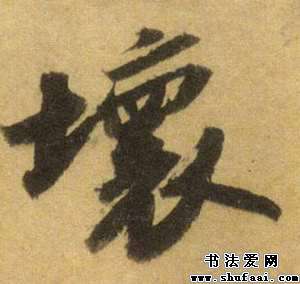 壞
书法爱网
www.shufaai.com